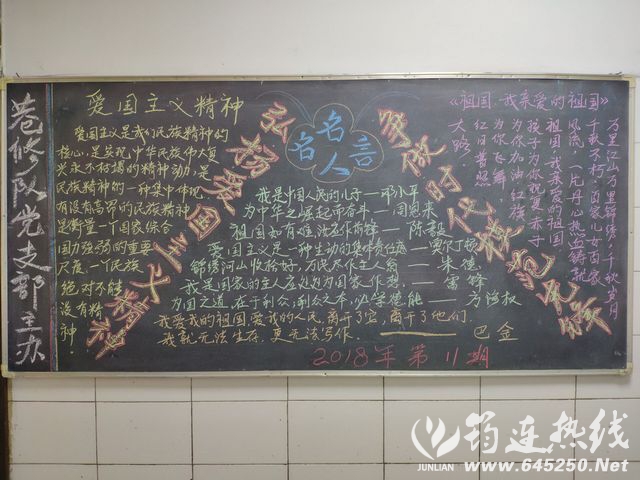 巷修队党支部主办
爱国主义精神
爱国主义是我们民族精神的
核心,是实现中华民族伟大复
兴永不枯竭的精神动力,是
民族精神的一种集中体现。
有没有高昂的民族精神
是衡量一个国家综合
国力强弱的重要
尺度。一个民族
绝对不能
没有精
神。
弘扬爱国主义精神
名人名言
争做时代模范先锋
我是中国人民的儿子—邓小平
为中华之崛起而奋斗—周恩来
祖国如有难,汝应作前锋—陈毅
爱国主义是一种生动的集体责任感—
锦绣河山收拾好,万民尽作主人翁—朱德
我是国家的主人应该处处为国家作想—雷锋
为国之道,在于利众;利众之本,必学楚能—
我爱我的祖国,爱我的人民,离开了它,离开了他们,
我就无法生存,更无法写作。——巴金
2018年第11期
《祖国,我亲爱的祖国》
万里江山万里锦绣,千秋岁月
千秋不朽。百家儿女百家
风流,一片丹心热血铸就
祖国,我亲爱的祖国
孩子为你祝贺,赤子
为你加油,红旗
为你飞舞,
红日普照
大路。
筠连热线
JUNLIAN
www.645250.Net